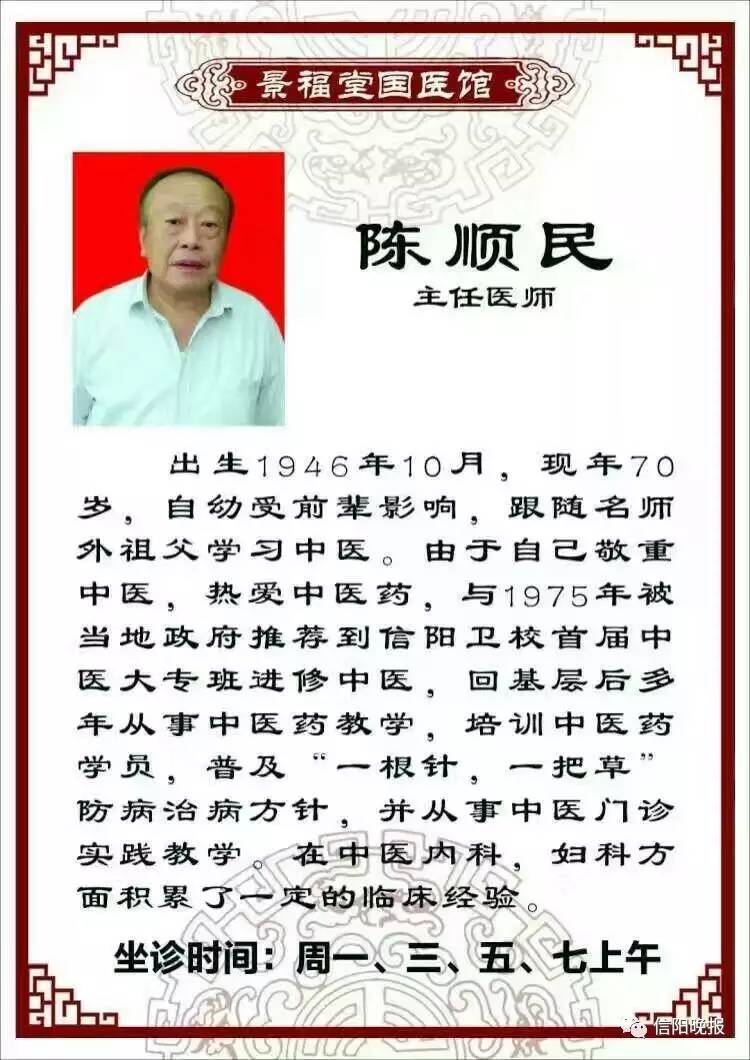 景福堂国医馆
陈顺民
主任医师
出生1946年10月，现年70
岁，自幼受前辈影响，跟随名师
外祖父学习中医。由于自己敬重
中医，热爱中医药，与1975年被
当地政府推荐到信阳卫校首届中
医大专班进修中医，回基层后多
年从事中医药教学，培训中医药
学员，普及“一根针，一把草”
防病治病方针，并从事中医门诊
实践教学。在中医内科，妇科方
面积累了一定的临床经验。
坐诊时间：周一、三、五、七上午
信阳晚报